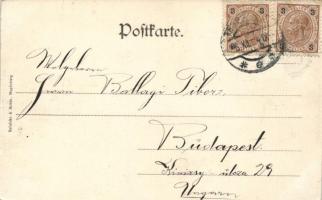 Postkarte.
Wolgeboren
Herrn Ballagi Tibor
Budapest
Kinizsy-utcza 29
Ungarn
3
3